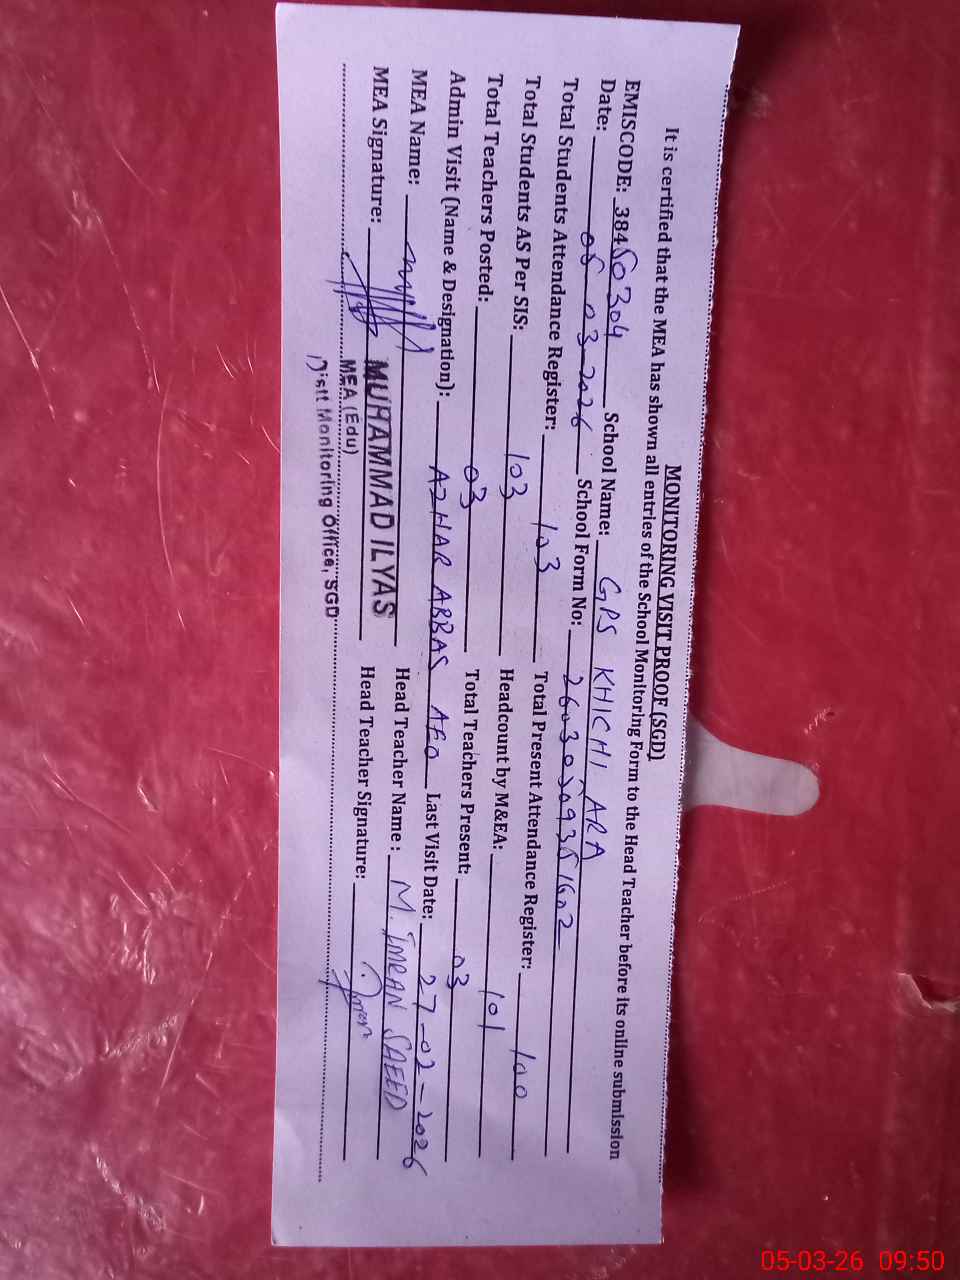 MONITORING VISIT PROOF (SGD)
It is certified that the MEA has shown all entries of the School Monitoring Form to the Head Teacher before its online submission
EMISCODE: 38450304 School Name: GPS KHICHI ARA
Date: 05 03-2026 School Form No:
Total Students Attendance Register: 103 Total Present Attendance Register: 100
Total Students AS Per SIS: 103 Headcount by M&EA: 101
Total Teachers Posted: 03 Total Teachers Present: 03
Admin Visit (Name & Designation): AZHAR ABBAS AEO Last Visit Date: 27-02-2026
MEA Name: Head Teacher Name: M. IMRAN SAEED
MEA Signature: Head Teacher Signature:
MUHAMMAD ILYAS
MEA (Edu)
Distt Monitoring Office, SGD
05-03-26 09:50